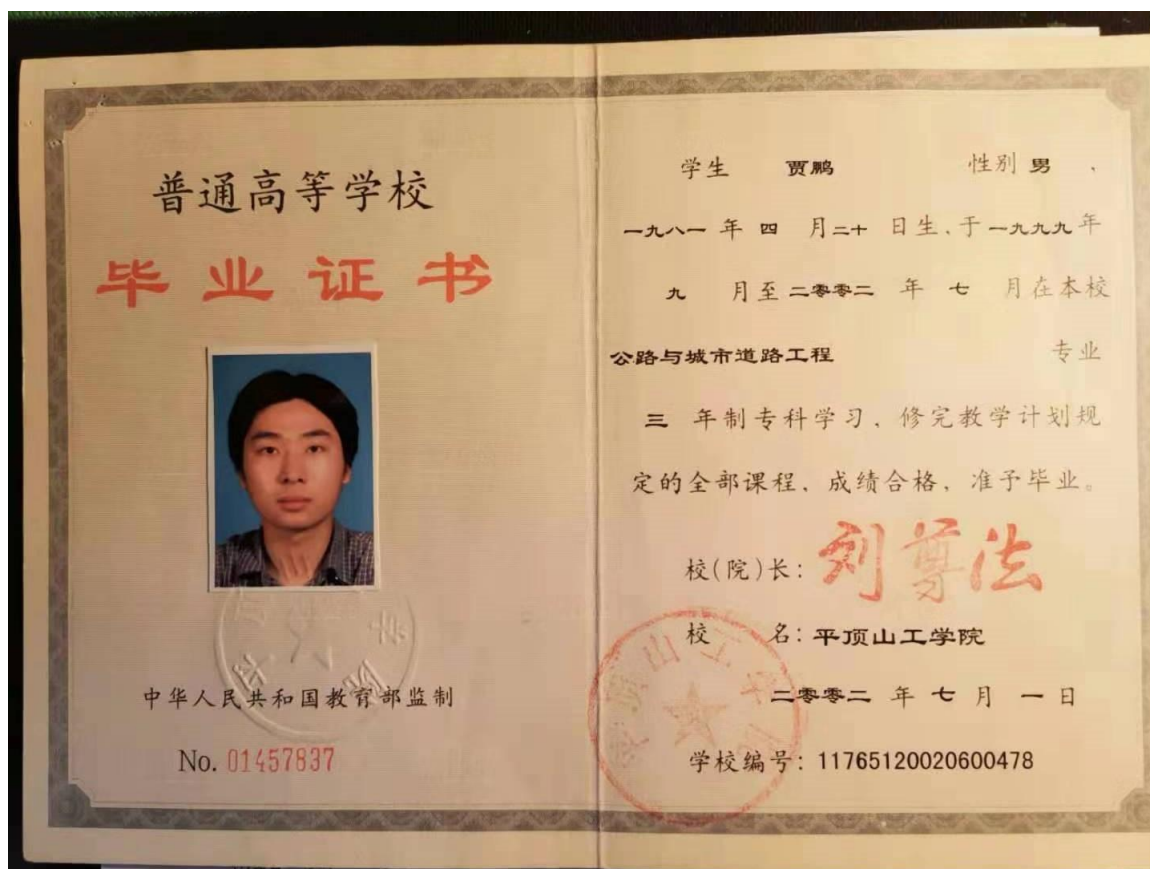 普通高等学校
毕业证书
中华人民共和国教育部监制
No. 01457837
学生 贾鹏 性别 男 ,
一九八一 年 四 月 二十 日生、于 一九九九 年
九 月至 二零零二 年 七 月在本校
公路与城市道路工程 专业
三 年制专科学习、修完教学计划规
定的全部课程、成绩合格、准予毕业。
校(院)长: 刘尊法
校 名: 平顶山工学院
二零零二 年 七 月 一 日
学校编号: 11765120020600478
平顶山工学院